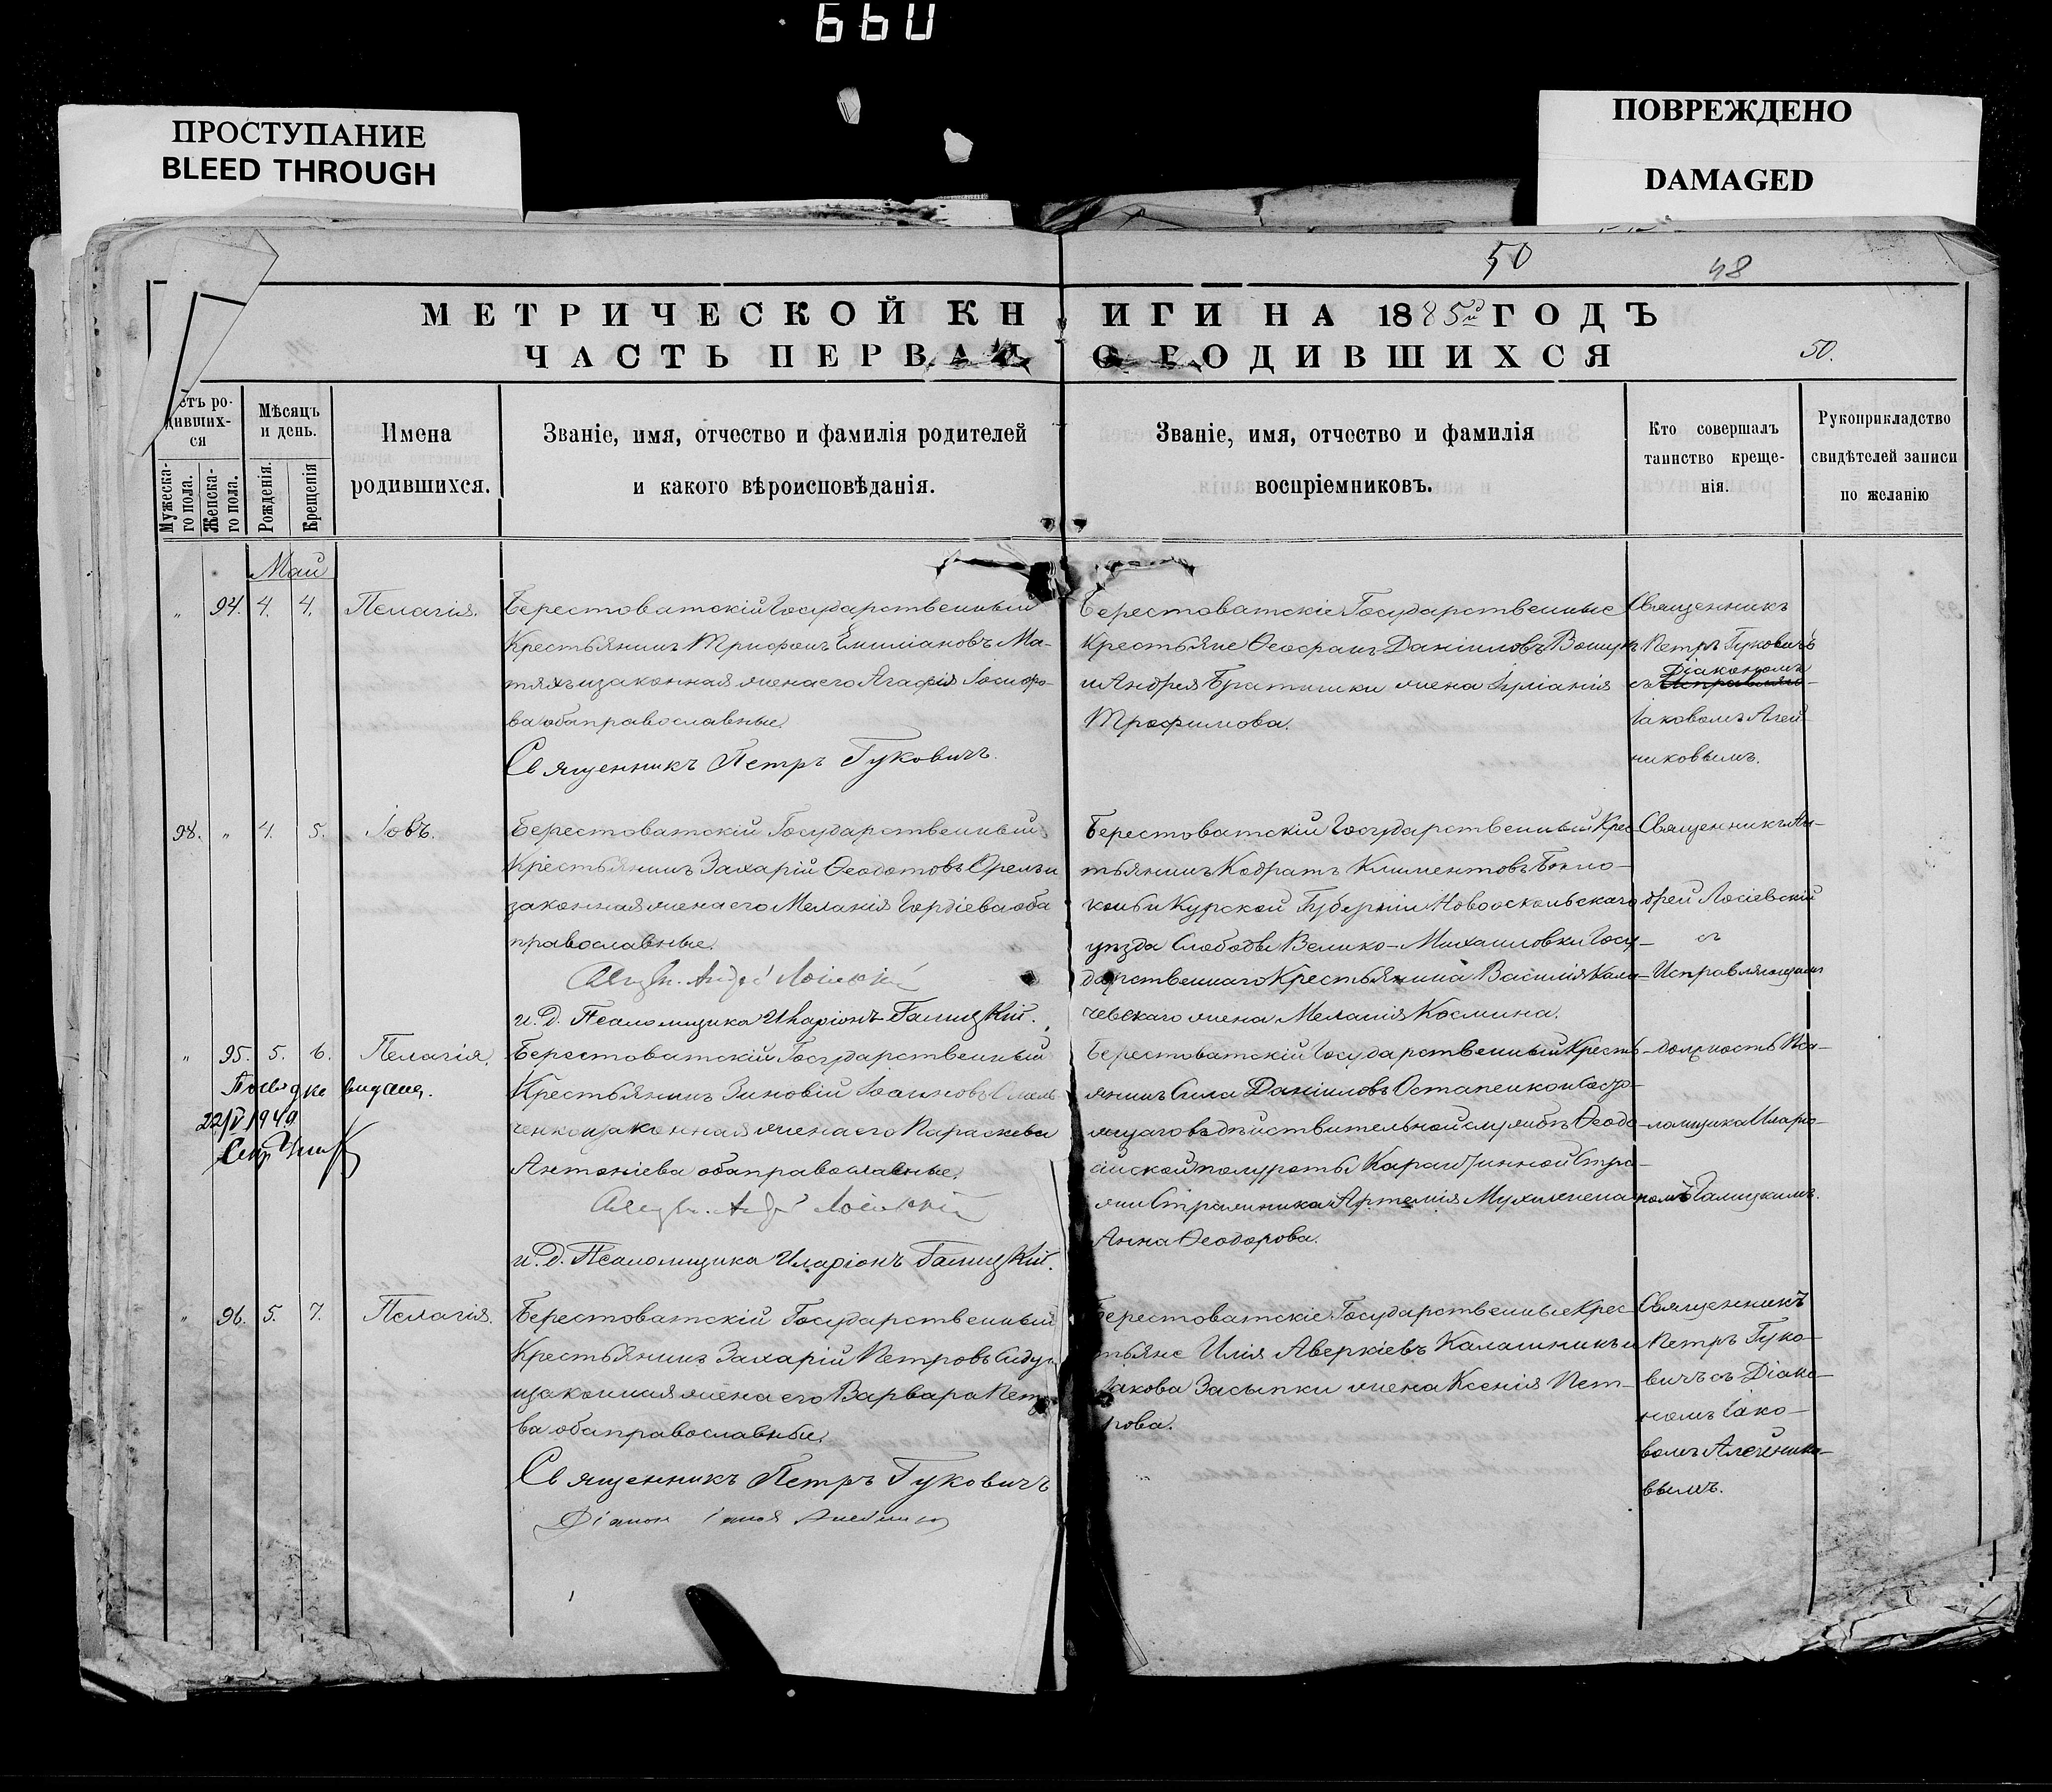 660
ПРОСТУПАНИЕ
BLEED THROUGH
ПОВРЕЖДЕНО
DAMAGED
50
48
МЕТРИЧЕСКОЙ КНИГИ НА 1885й ГОДЪ
ЧАСТЬ ПЕРВАЯ О РОДИВШИХСЯ
50.
етъ ро-
дивших-
ся
Мужеска-
го пола.
Женска-
го пола.
Мѣсяцъ
и день.
Рожденія.
Крещенія
Имена
родившихся.
Званіе, имя, отчество и фамилія родителей
и какого вѣроисповѣданія.
Званіе, имя, отчество и фамилія
воспріемниковъ.
Кто совершалъ
таинство креще-
нія.
Рукоприкладство
свидѣтелей записи
по желанію
Май
" 94. 4. 4. Пелагія.
Берестоватскій Государственный
Крестьянинъ Трифонъ Емиліановъ Ма-
тяхъ и законная жена его Агафія Іосифо-
ва оба православные.
Священникъ Петръ Гуковичъ.
Берестоватскіе Государственные
Крестьяне Ѳеофанъ Даніиловъ
и Андрея Братишки жена Іуліанія
Трофимова.
Священникъ
Петръ Гуковичъ
Діакономъ
съ
Іаковомъ Алей-
никовымъ.
98. " 4. 5. Іовъ.
Берестоватскій Государственный
Крестьянинъ Захарій Ѳеодотовъ Орелъ и
законная жена его Меланія Гордіева оба
православные.
Андрей Лосіевскій
и. д. Псаломщика Иларіонъ Галицкій.
Берестоватскій Государственный Крес-
тьянинъ Кодратъ Климентовъ
и Курской Губерніи Новооскольскаго
уѣзда Слободы Велико-Михайловки Госу-
дарственнаго Крестьянина Василія Кала-
чевскаго жена Меланія Космина.
Священникъ Ан-
дрей Лосіевскій
съ
Исправляющимъ
должность Пса-
ломщика Иларіо-
номъ Галицкимъ.
" 95. 5. 6. Пелагія.
22/V 1949
Берестоватскій Государственный
Крестьянинъ Зиновій Іоанновъ
ченко и законная жена его Параскева
Антоніева оба православные.
Андрей Лосіевскій
и. д. Псаломщика Иларіонъ Галицкій.
Берестоватскій Государственный Кресть-
янинъ Сила Даніиловъ Остапенко и Состо-
ящаго въ дѣйствительной службѣ Ѳеодо-
сійской полуроты Карантинной Стра-
жи Стражника Артемія Мухи жена
Анна Ѳеодорова.
" 96. 5. 7. Пелагія.
Берестоватскій Государственный
Крестьянинъ Захарій Петровъ
и законная жена его Варвара Петро-
ва оба православные.
Священникъ Петръ Гуковичъ
Діаконъ Іаковъ Алейниковъ
Берестоватскіе Государственные Крес-
тьяне Илія Аверкіевъ Калашникъ и
Іакова Засыпки жена Ксенія Пет-
рова.
Священникъ
Петръ Гуко-
вичъ съ Діако-
номъ Іако-
вомъ Алейнико-
вымъ.